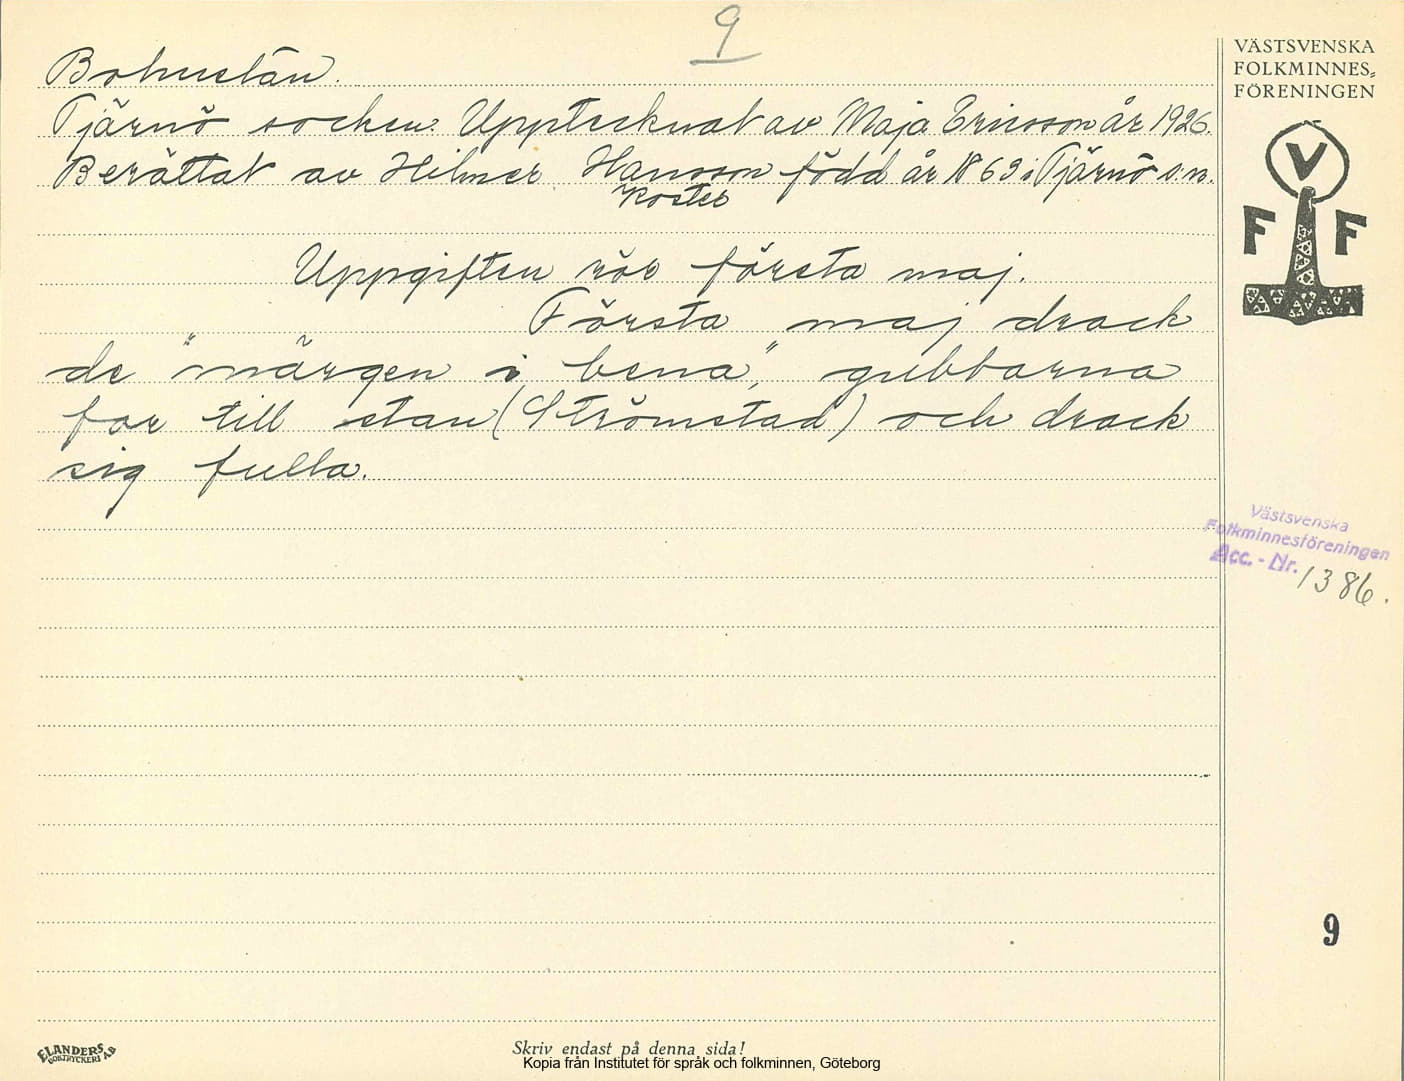 9
Bohuslän.
Tjärnö socken. Upptecknat av Maja Ericsson år 1926.
Berättat av Hilmer Hansson född år 1863 i Tjärnö s.n.
Koster
Uppgiften rör första maj.
Första maj drack
de "märgen i bena", gubbarna
for till stan (Strömstad) och drack
sig fulla.
VÄSTSVENSKA
FOLKMINNES-
FÖRENINGEN
V
F F
Västsvenska
Folkminnesföreningen
Acc. - Nr. 1386.
9
ELANDERS
BOKTRYCKERI AB
Skriv endast på denna sida!
Kopia från Institutet för språk och folkminnen, Göteborg